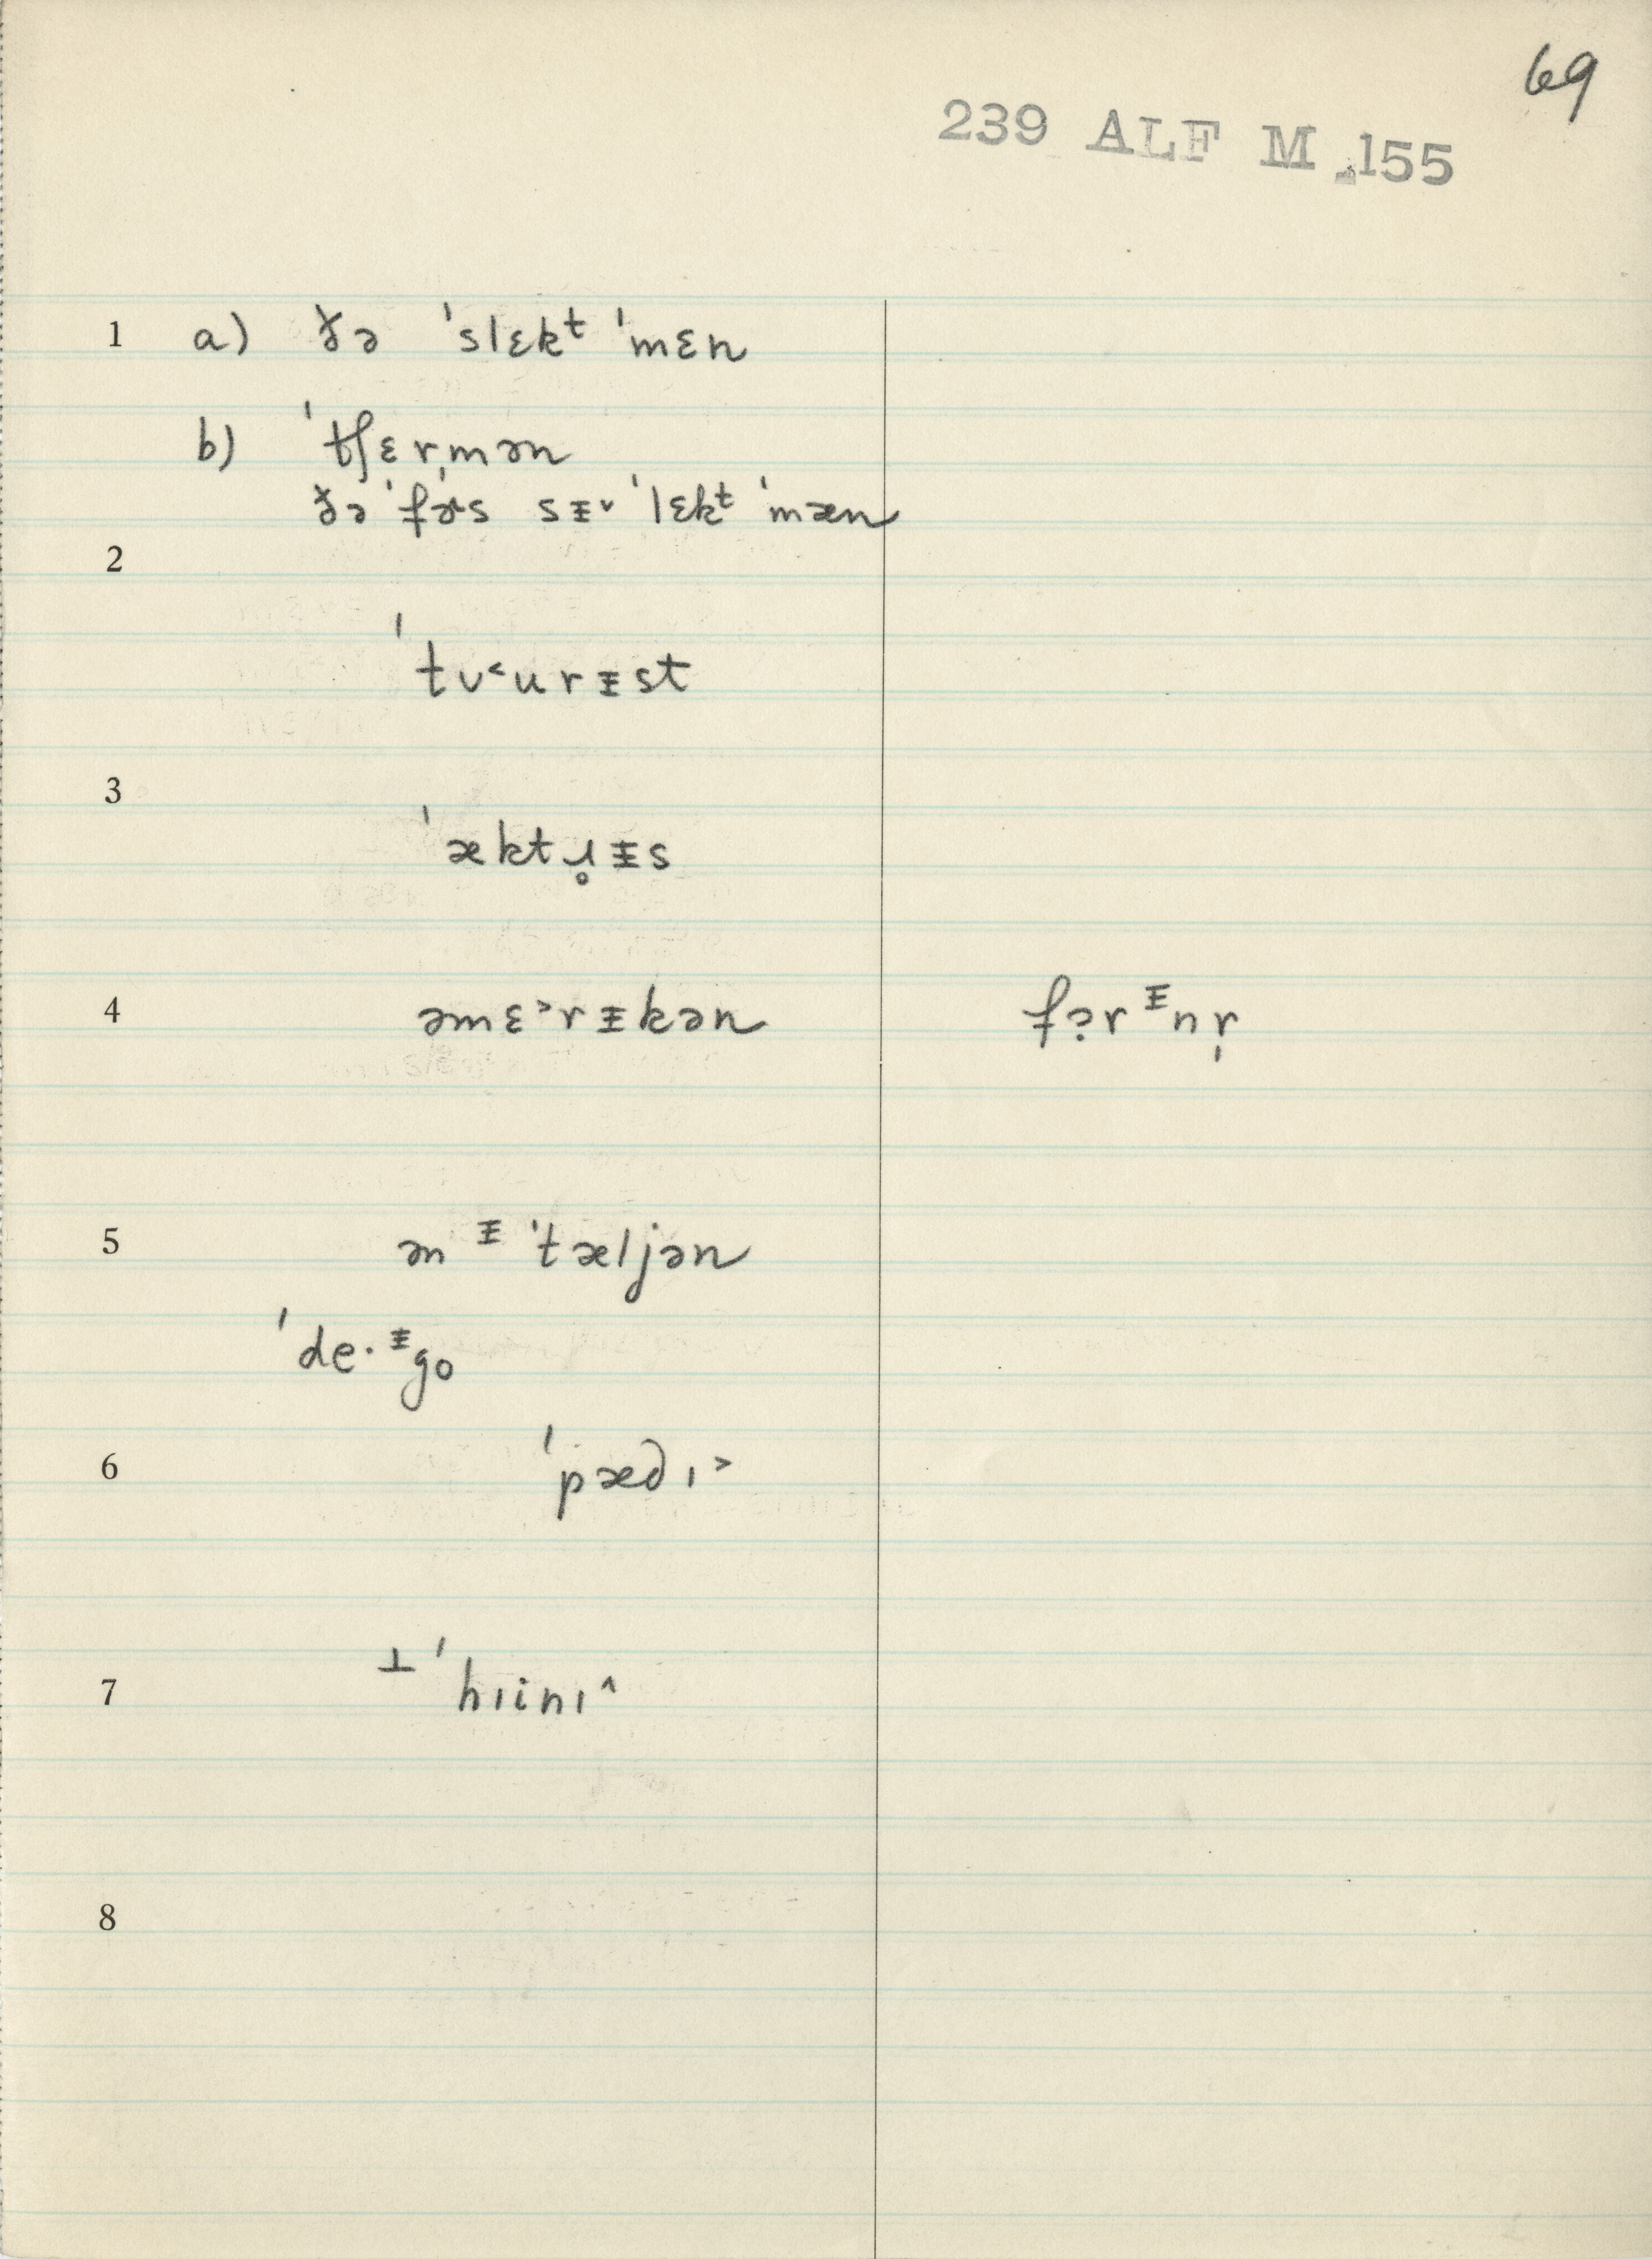 69
239 ALF M 155
1 a) ðə ˈslɛkᵗ ˈmɛn
b) ˈtʃɛr̩mən
ðə ˈfɚs sᵻ˅ ˈlɛkᵗ ˈmæn
2
ˈtʊ˂urᵻst
3
ˈæktɹ̥ᵻs
4 əmɛ˃rᵻkən fə̣rᵻnr̩
5 ən ᵻ ˈtæljən
ˈde·ᵻgo
6 ˈpæd ɪ˃
7 ⊥ ˈhɪinɪ˄
8